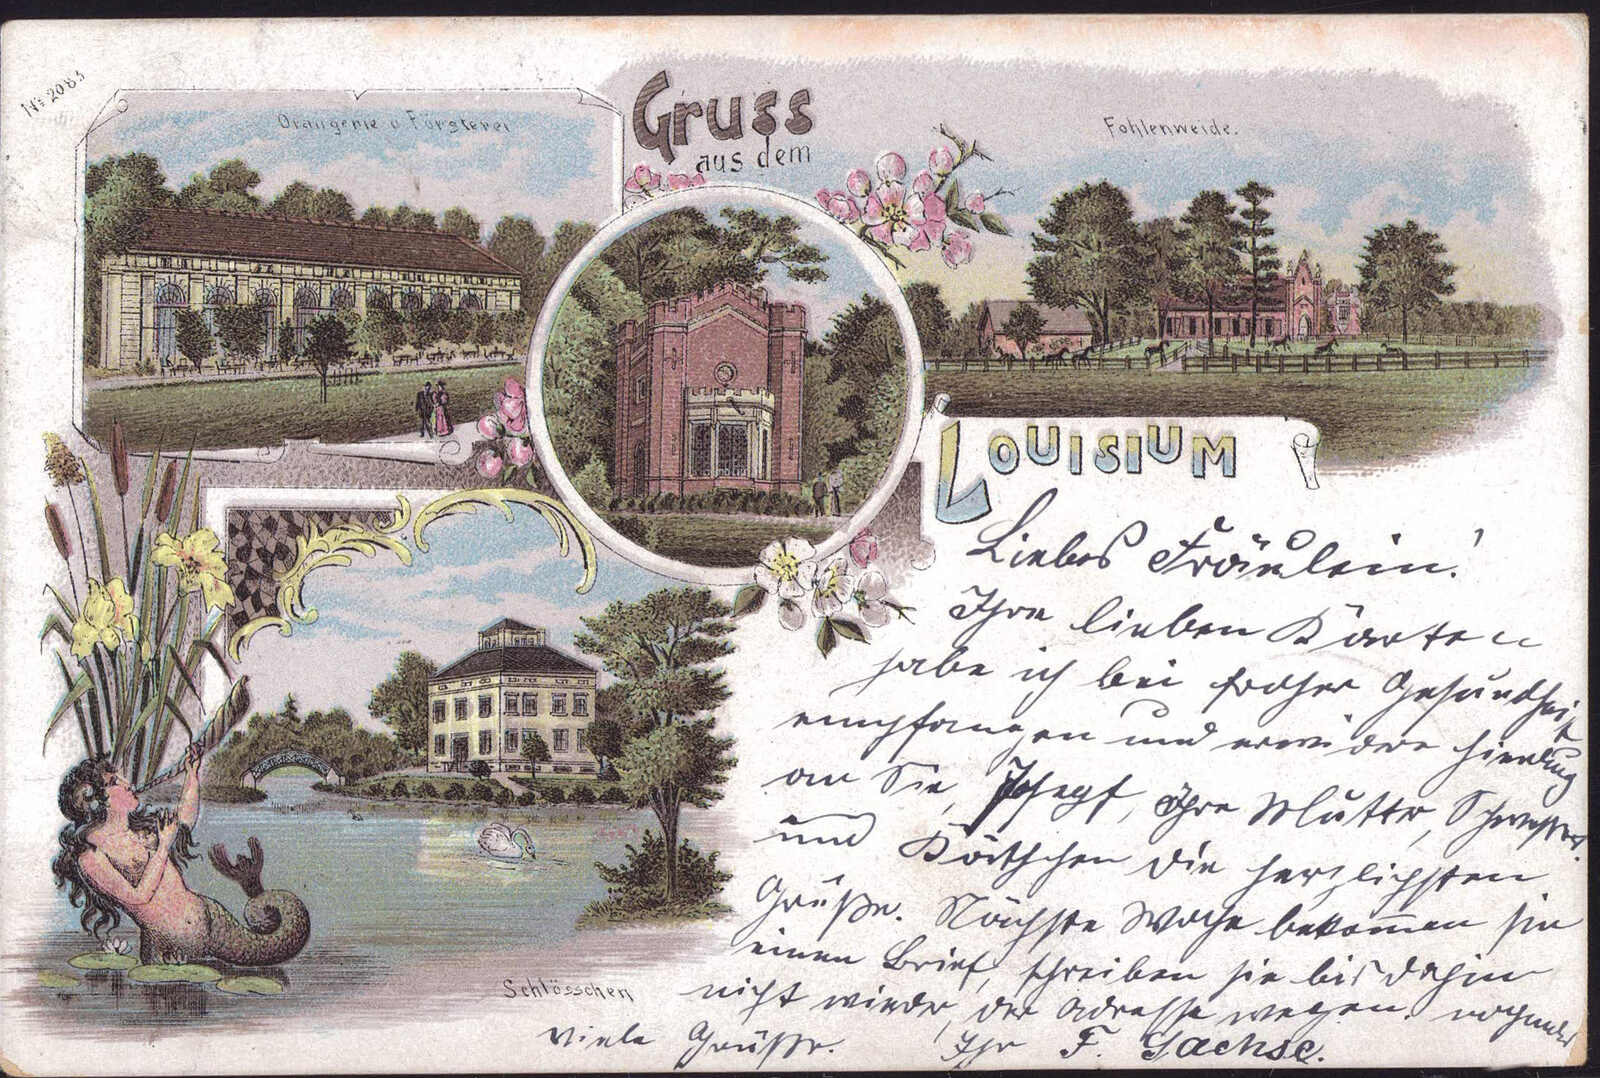 No 2083
Orangerie u. Försterei
Gruss
aus dem
Fohlenweide.
Louisium
Schlösschen
Liebes Fräulein!
Ihre lieben Karten
habe ich bei froher Gesundheit
empfangen und erwidere hierauf
an Sie, Ihre Mutter, Schwester
und Käthchen die herzlichsten
Grüße. Nächste Woche bekommen sie
einen Brief, schreiben sie bis dahin
nicht wieder, der Adresse wegen. nochmals
viele Grüße. Ihr F. Sachse.